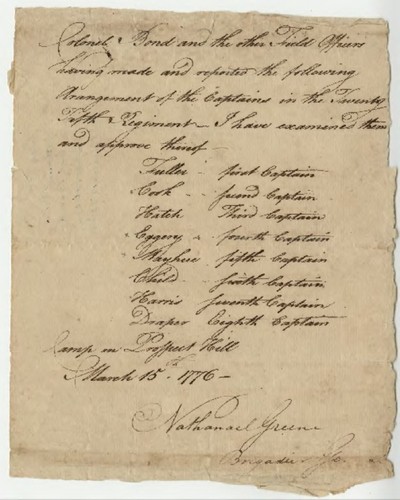 Colonel Bond and the other Field Officers
having made and reported the following
Arrangement of the Captains in the Twenty
Fifth Regiment – I have examined them
and approve thereof –
Fuller - first Captain
Cook - second Captain
Hatch Third Captain
Eggery - fourth Captain
Mayhue fifth Captain
Child - sixth Captain
Harris seventh Captain
Draper Eighth Captain
Camp on Prospect Hill
March 15th 1776 –
Nathanael Greene
Brigadier Ge.